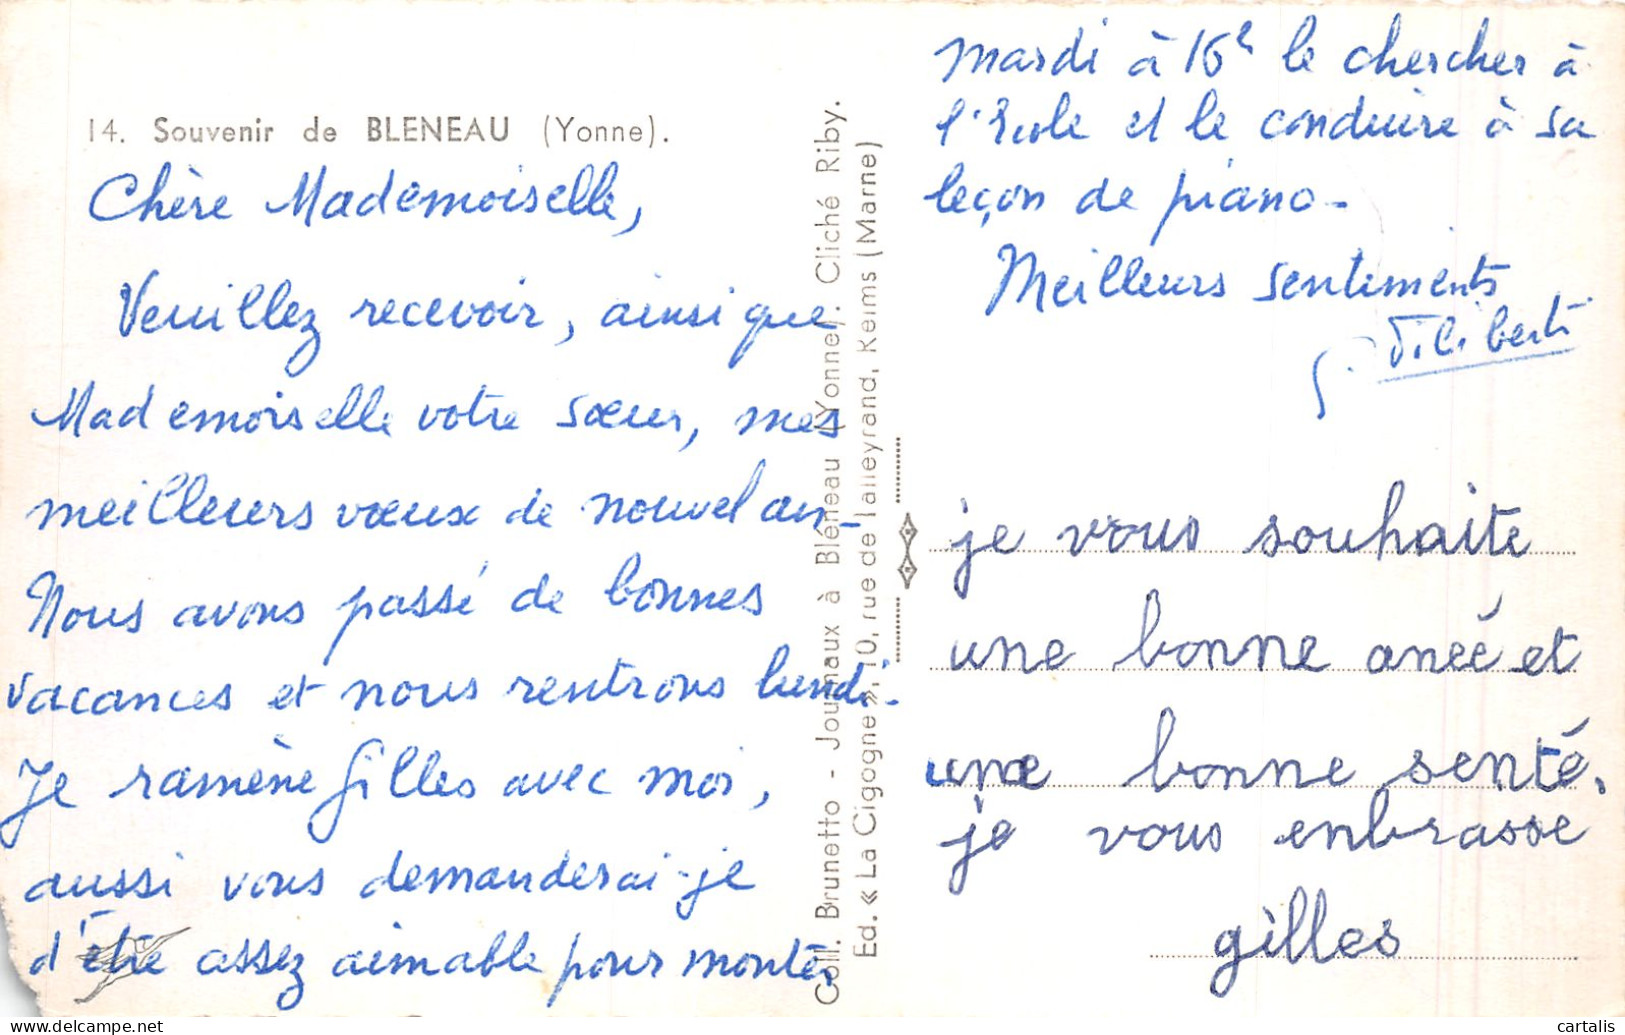 14. Souvenir de BLENEAU (Yonne).
Chère Mademoiselle,
Veuillez recevoir, ainsi que
Mademoiselle votre sœur, mes
meilleurs vœux de nouvel an -
Nous avons passé de bonnes
vacances et nous rentrons lundi -
Je ramène Gilles avec moi,
aussi vous demanderai-je
d'être assez aimable pour monter
Coll. Brunetto - Journaux à Bléneau (Yonne). Cliché Riby.
Ed. « La Cigogne », 10, rue de Talleyrand, Reims (Marne)
mardi à 16h le chercher à
l'Ecole et le conduire à sa
leçon de piano -
Meilleurs sentiments
je vous souhaite
une bonne aneé et
une bonne senté.
je vous enbrasse
gilles
cartalis